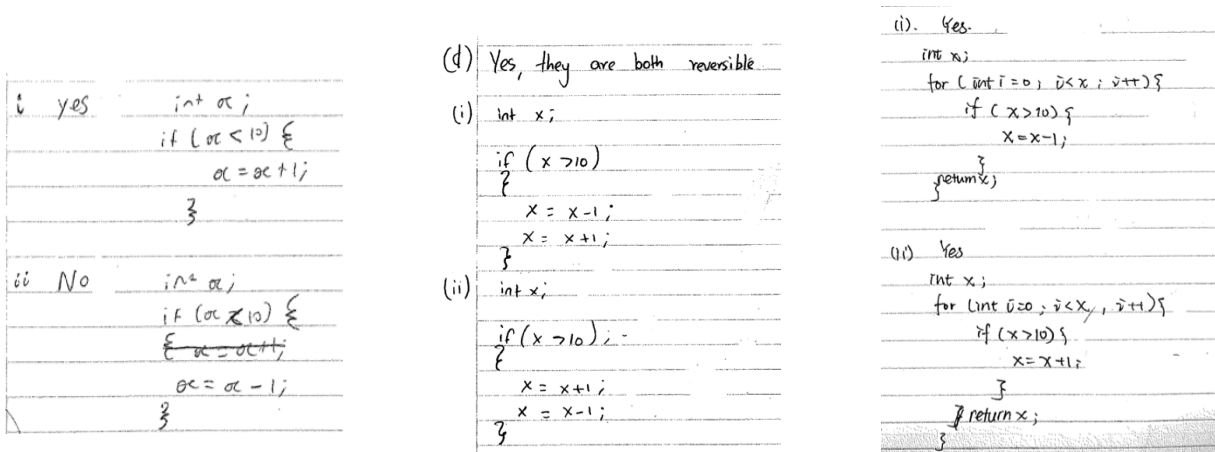 i yes int x;
if (x < 10) {
x = x+1;
}
ii No int x;
if (x < 10) {
{ x = x+1;
x = x - 1;
}
(d) Yes, they are both reversible
(i) int x;
if (x >10)
{
x = x-1;
x = x+1;
}
(ii) int x;
if (x >10);
{
x = x+1;
x = x-1;
}
(i). Yes.
int x;
for (int i=0; i<x; i++){
if (x>10){
x=x-1;
}
return x;
}
(ii) Yes
int x;
for (int i=0; i<x, i++){
if (x>10){
x=x+1;
}
} return x;
}